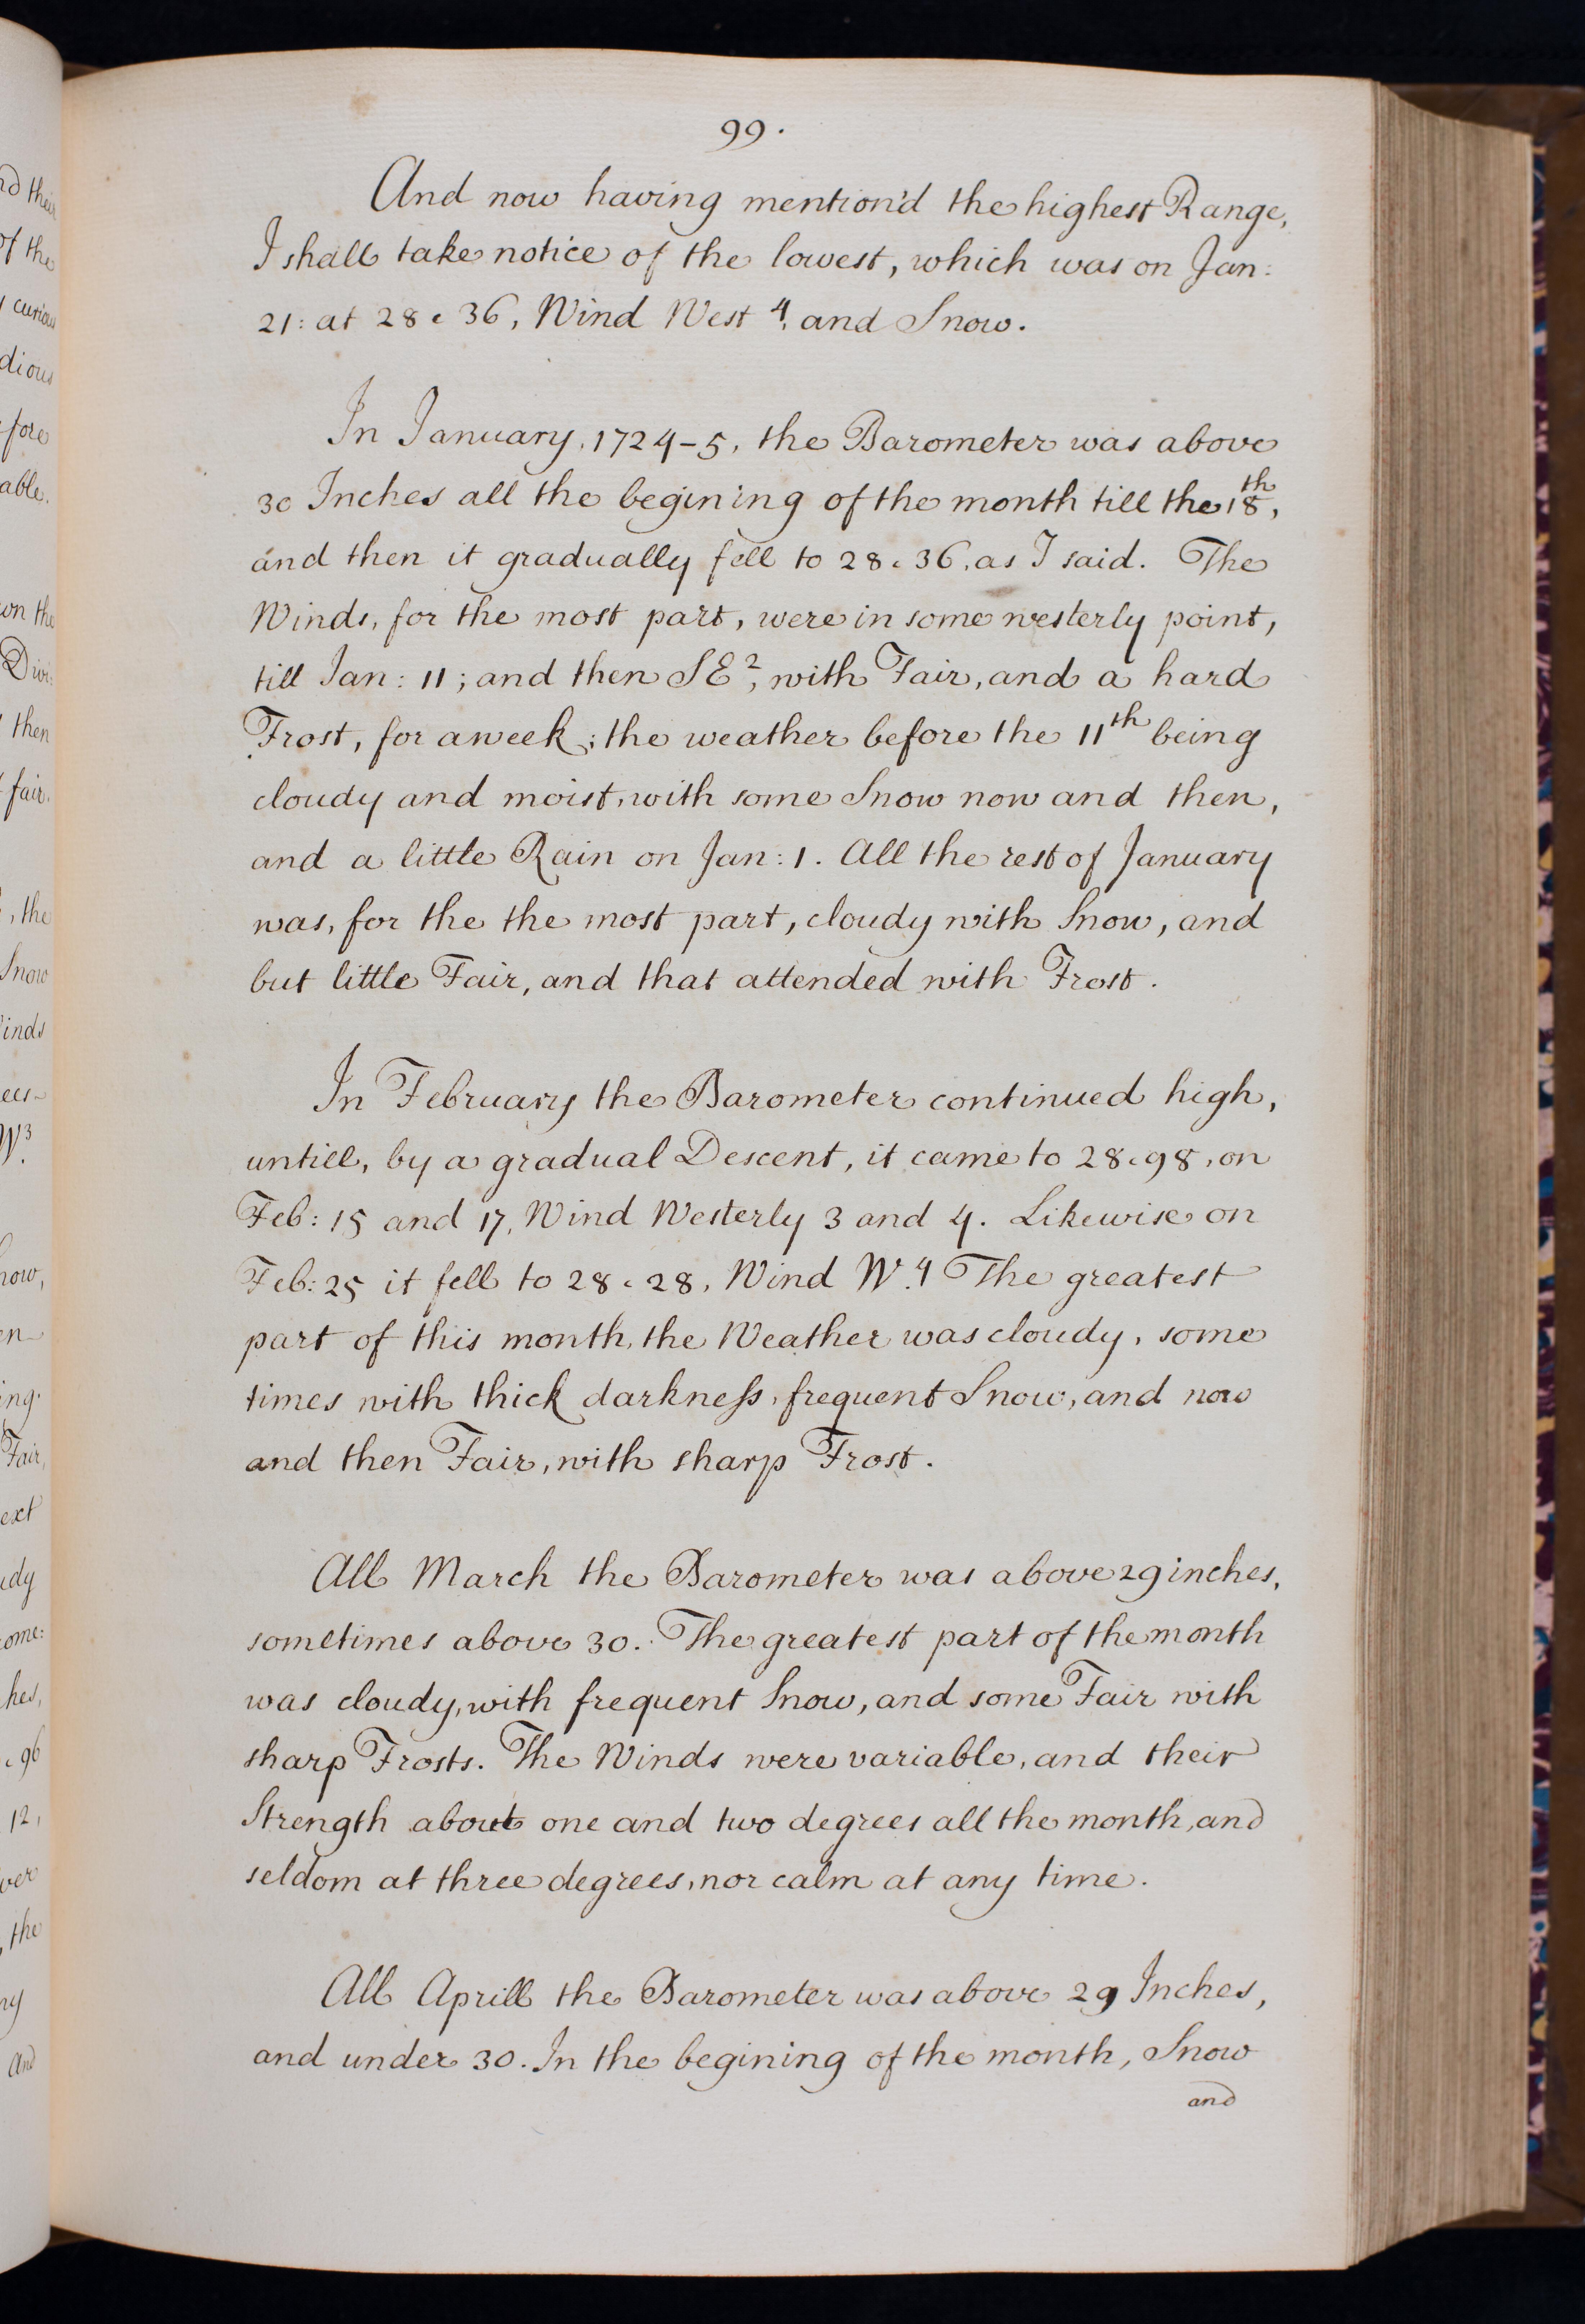 99.
And now having mention'd the highest Range,
I shall take notice of the lowest, which was on Jan:
21: at 28 . 36, Wind West 4, and Snow.
In January, 1724-5, the Barometer was above
30 Inches all the begining of the month till the 18th,
and then it gradually fell to 28 . 36, as I said. The
Winds, for the most part, were in some westerly point,
till Jan: 11; and then SE 2, with Fair, and a hard
Frost, for a week; the weather before the 11th being
cloudy and moist, with some Snow now and then,
and a little Rain on Jan: 1. All the rest of January
was, for the the most part, cloudy with Snow, and
but little Fair, and that attended with Frost.
In February the Barometer continued high,
untill, by a gradual Descent, it came to 28 . 98, on
Feb: 15 and 17, Wind Westerly 3 and 4. Likewise on
Feb: 25 it fell to 28 . 28, Wind W. 4 The greatest
part of this month, the Weather was cloudy, some
times with thick darkneſs, frequent Snow, and now
and then Fair, with sharp Frost.
All March the Barometer was above 29 inches,
sometimes above 30. The greatest part of the month
was cloudy, with frequent Snow, and some Fair with
sharp Frosts. The Winds were variable, and their
Strength about one and two degrees all the month, and
seldom at three degrees, nor calm at any time.
All Aprill the Barometer was above 29 Inches,
and under 30. In the begining of the month, Snow
and